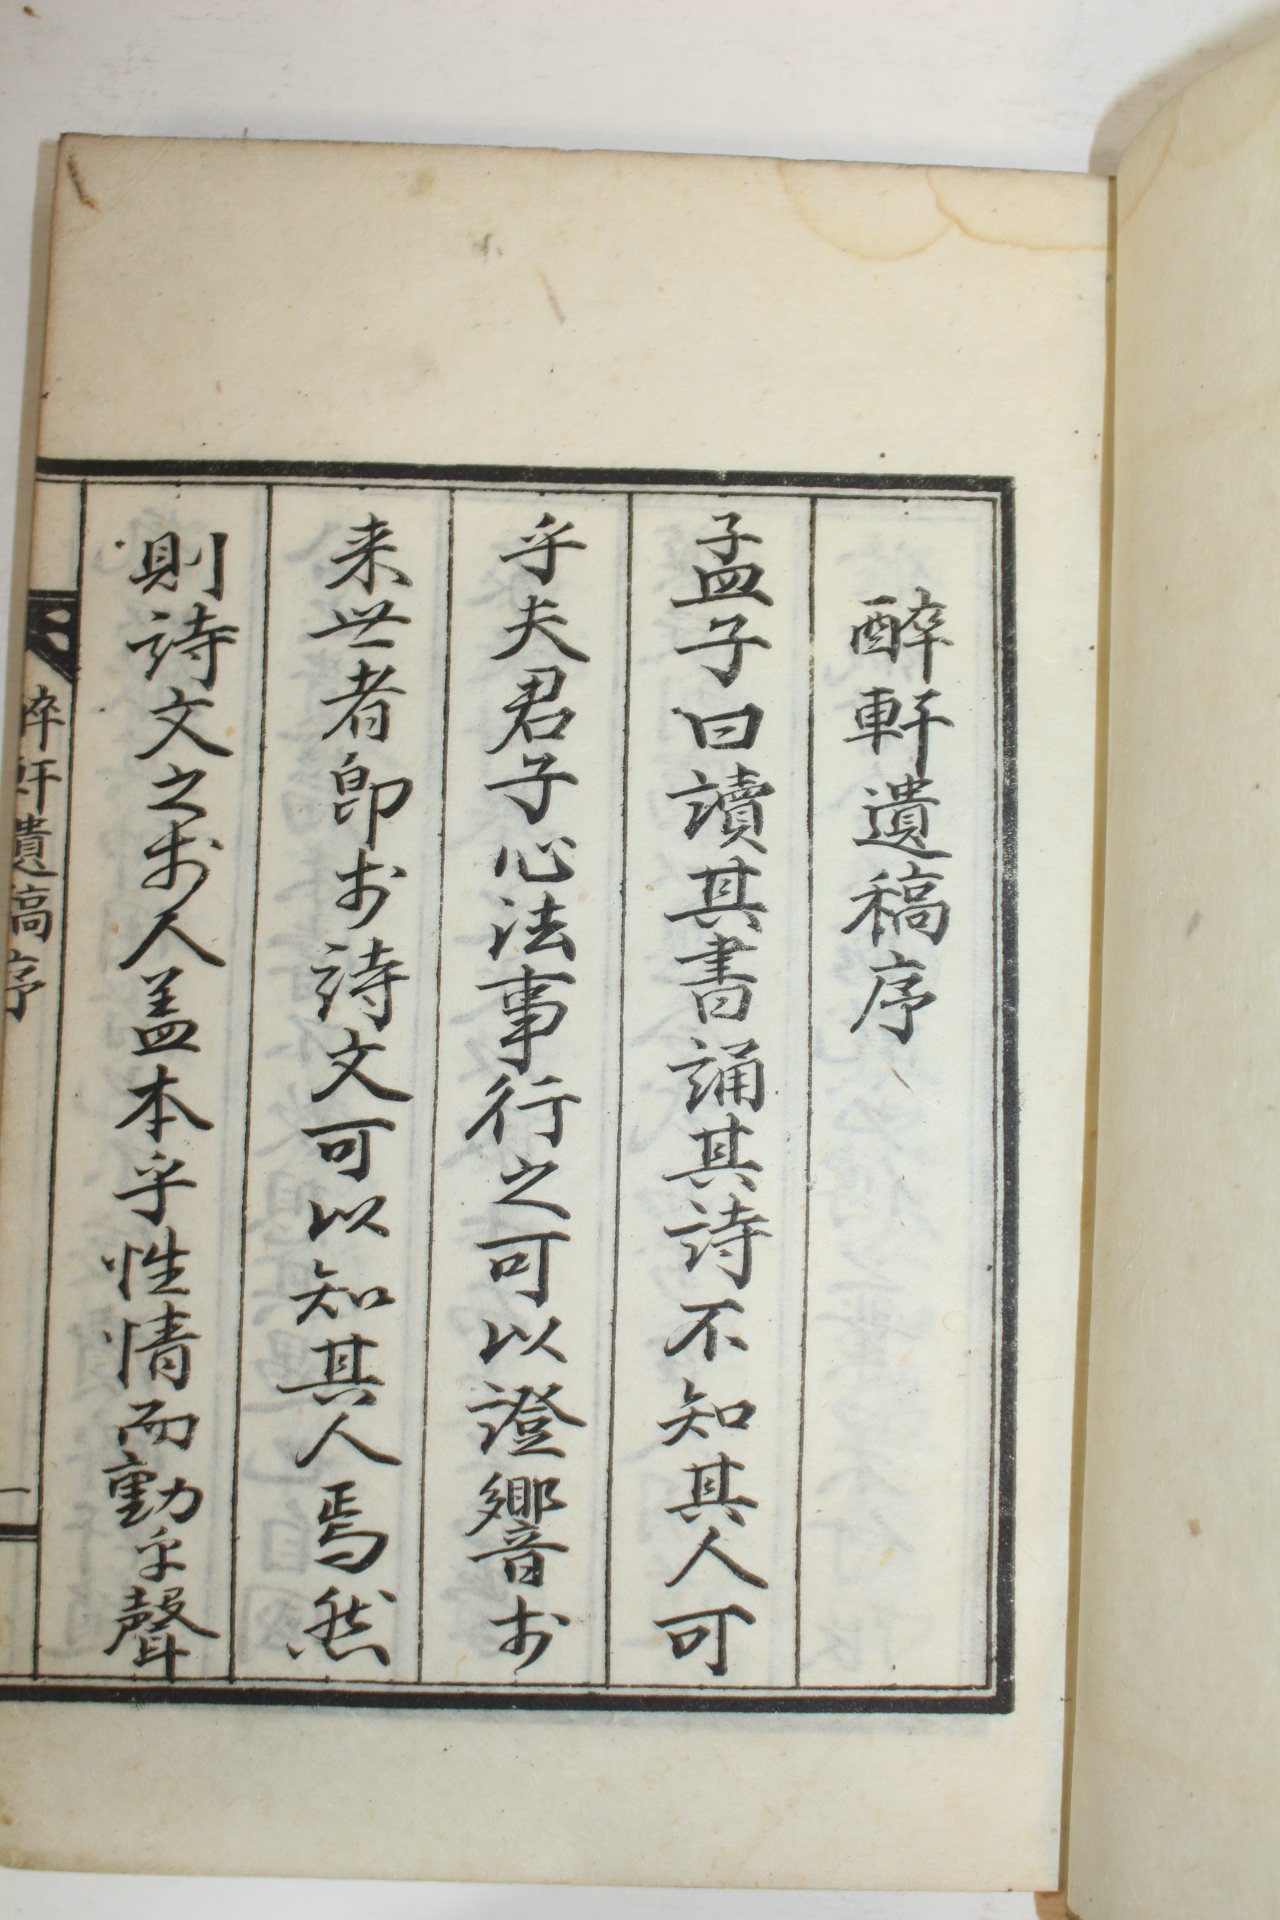 醉軒遺稿序
孟子曰讀其書誦其詩不知其人可
乎夫君子心法事行之可以證響扵
来世者即扵詩文可以知其人焉然
則詩文之扵人盖本乎性情而動乎聲
醉軒遺稿序
一